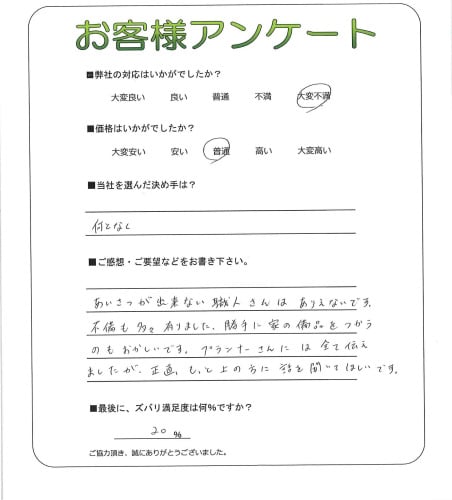 お客様アンケート
■弊社の対応はいかがでしたか？
大変良い 良い 普通 不満 大変不満
■価格はいかがでしたか？
大変安い 安い 普通 高い 大変高い
■当社を選んだ決め手は？
何となく
■ご感想・ご要望などをお書き下さい。
あいさつが出来ない職人さんは ありえないです。
不備も多々有りました。勝手に家の備品をつかう
のもおかしいです。プランナーさんには全て伝え
ましたが、正直、もっと上の方に話を聞いてほしいです。
■最後に、ズバリ満足度は何%ですか？
20 %
ご協力頂き、誠にありがとうございました。